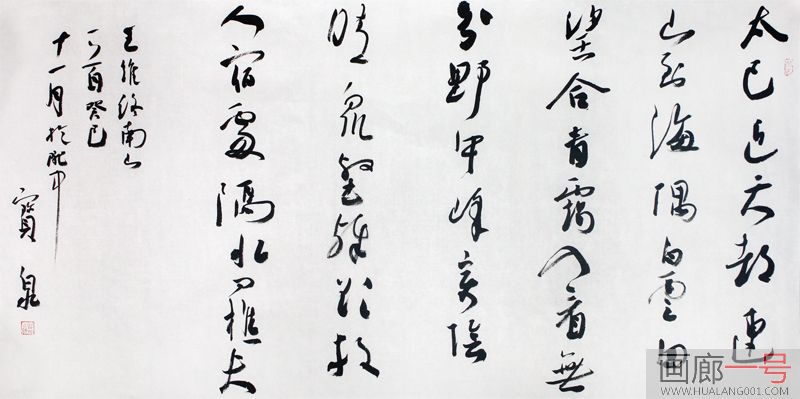 太乙近天都連
山到海隅白雲回
望合青靄入看無
分野中峰變陰
晴众壑殊欲投
人宿處隔水问樵夫
王维终南山
一首癸巳
十一月於肥中
寶泉
画廊一号
WWW.HUALANG001.COM